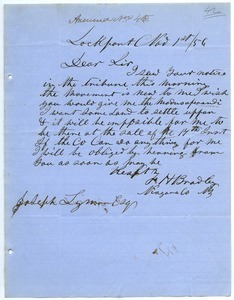 Answered Nov 4th
Lockport Nov 1st/56
Dear Sir,
I saw your notice
in the tribune this morning
the movement is new to me I wish
you would give me the
I want some land to settle uppon
& it will be impossible for me to
be there at the sale of the 14th Inst
If the Co Can do any thing for me
I will be obliged by hearing from
you as soon as may be
Respt
H Bradley
Niagara Co NY
Joseph Lyman Esq